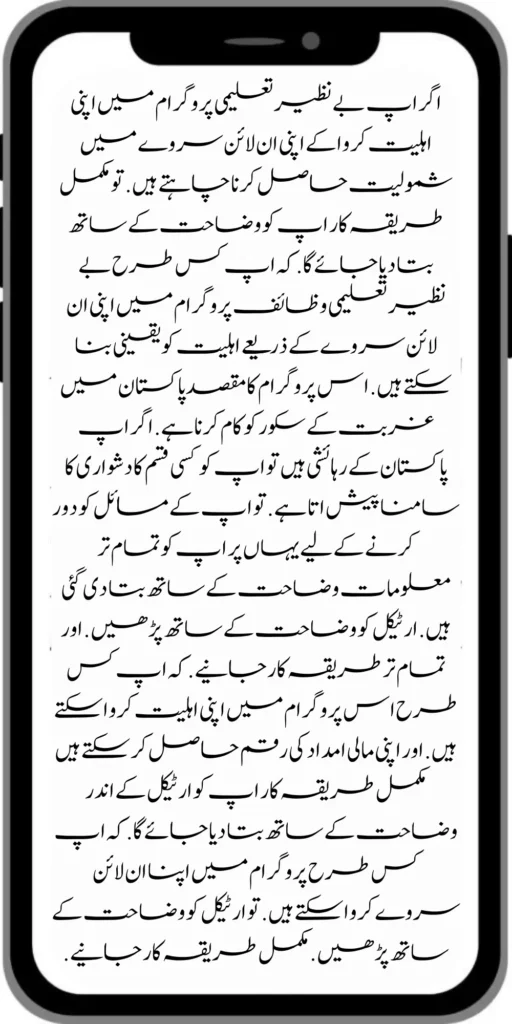 اگر اپ بے نظیر تعلیمی پروگرام میں اپنی
اہلیت کروا کے اپنی ان لائن سروے میں
شمولیت حاصل کرنا چاہتے ہیں. تو مکمل
طریقہ کار اپ کو وضاحت کے ساتھ
بتا دیا جائے گا. کہ اپ کس طرح بے
نظیر تعلیمی وظائف پروگرام میں اپنی ان
لائن سروے کے ذریعے اہلیت کو یقینی بنا
سکتے ہیں. اس پروگرام کا مقصد پاکستان میں
غربت کے سکور کو کام کرنا ہے. اگر اپ
پاکستان کے رہائشی ہیں تو اپ کو کسی قسم کا دشواری کا
سامنا پیش اتا ہے. تو اپ کے مسائل کو دور
کرنے کے لیے یہاں پر اپ کو تمام تر
معلومات وضاحت کے ساتھ بتا دی گئی
ہیں. ارٹیکل کو وضاحت کے ساتھ پڑھیں. اور
تمام تر طریقہ کار جانیے. کہ اپ کس
طرح اس پروگرام میں اپنی اہلیت کروا سکتے
ہیں. اور اپنی مالی امداد کی رقم حاصل کر سکتے ہیں
مکمل طریقہ کار اپ کو ارٹیکل کے اندر
وضاحت کے ساتھ بتا دیا جائے گا. کہ اپ
کس طرح پروگرام میں اپنا ان لائن
سروے کروا سکتے ہیں. تو ارٹیکل کو وضاحت کے
ساتھ پڑھیں. مکمل طریقہ کار جانیے.